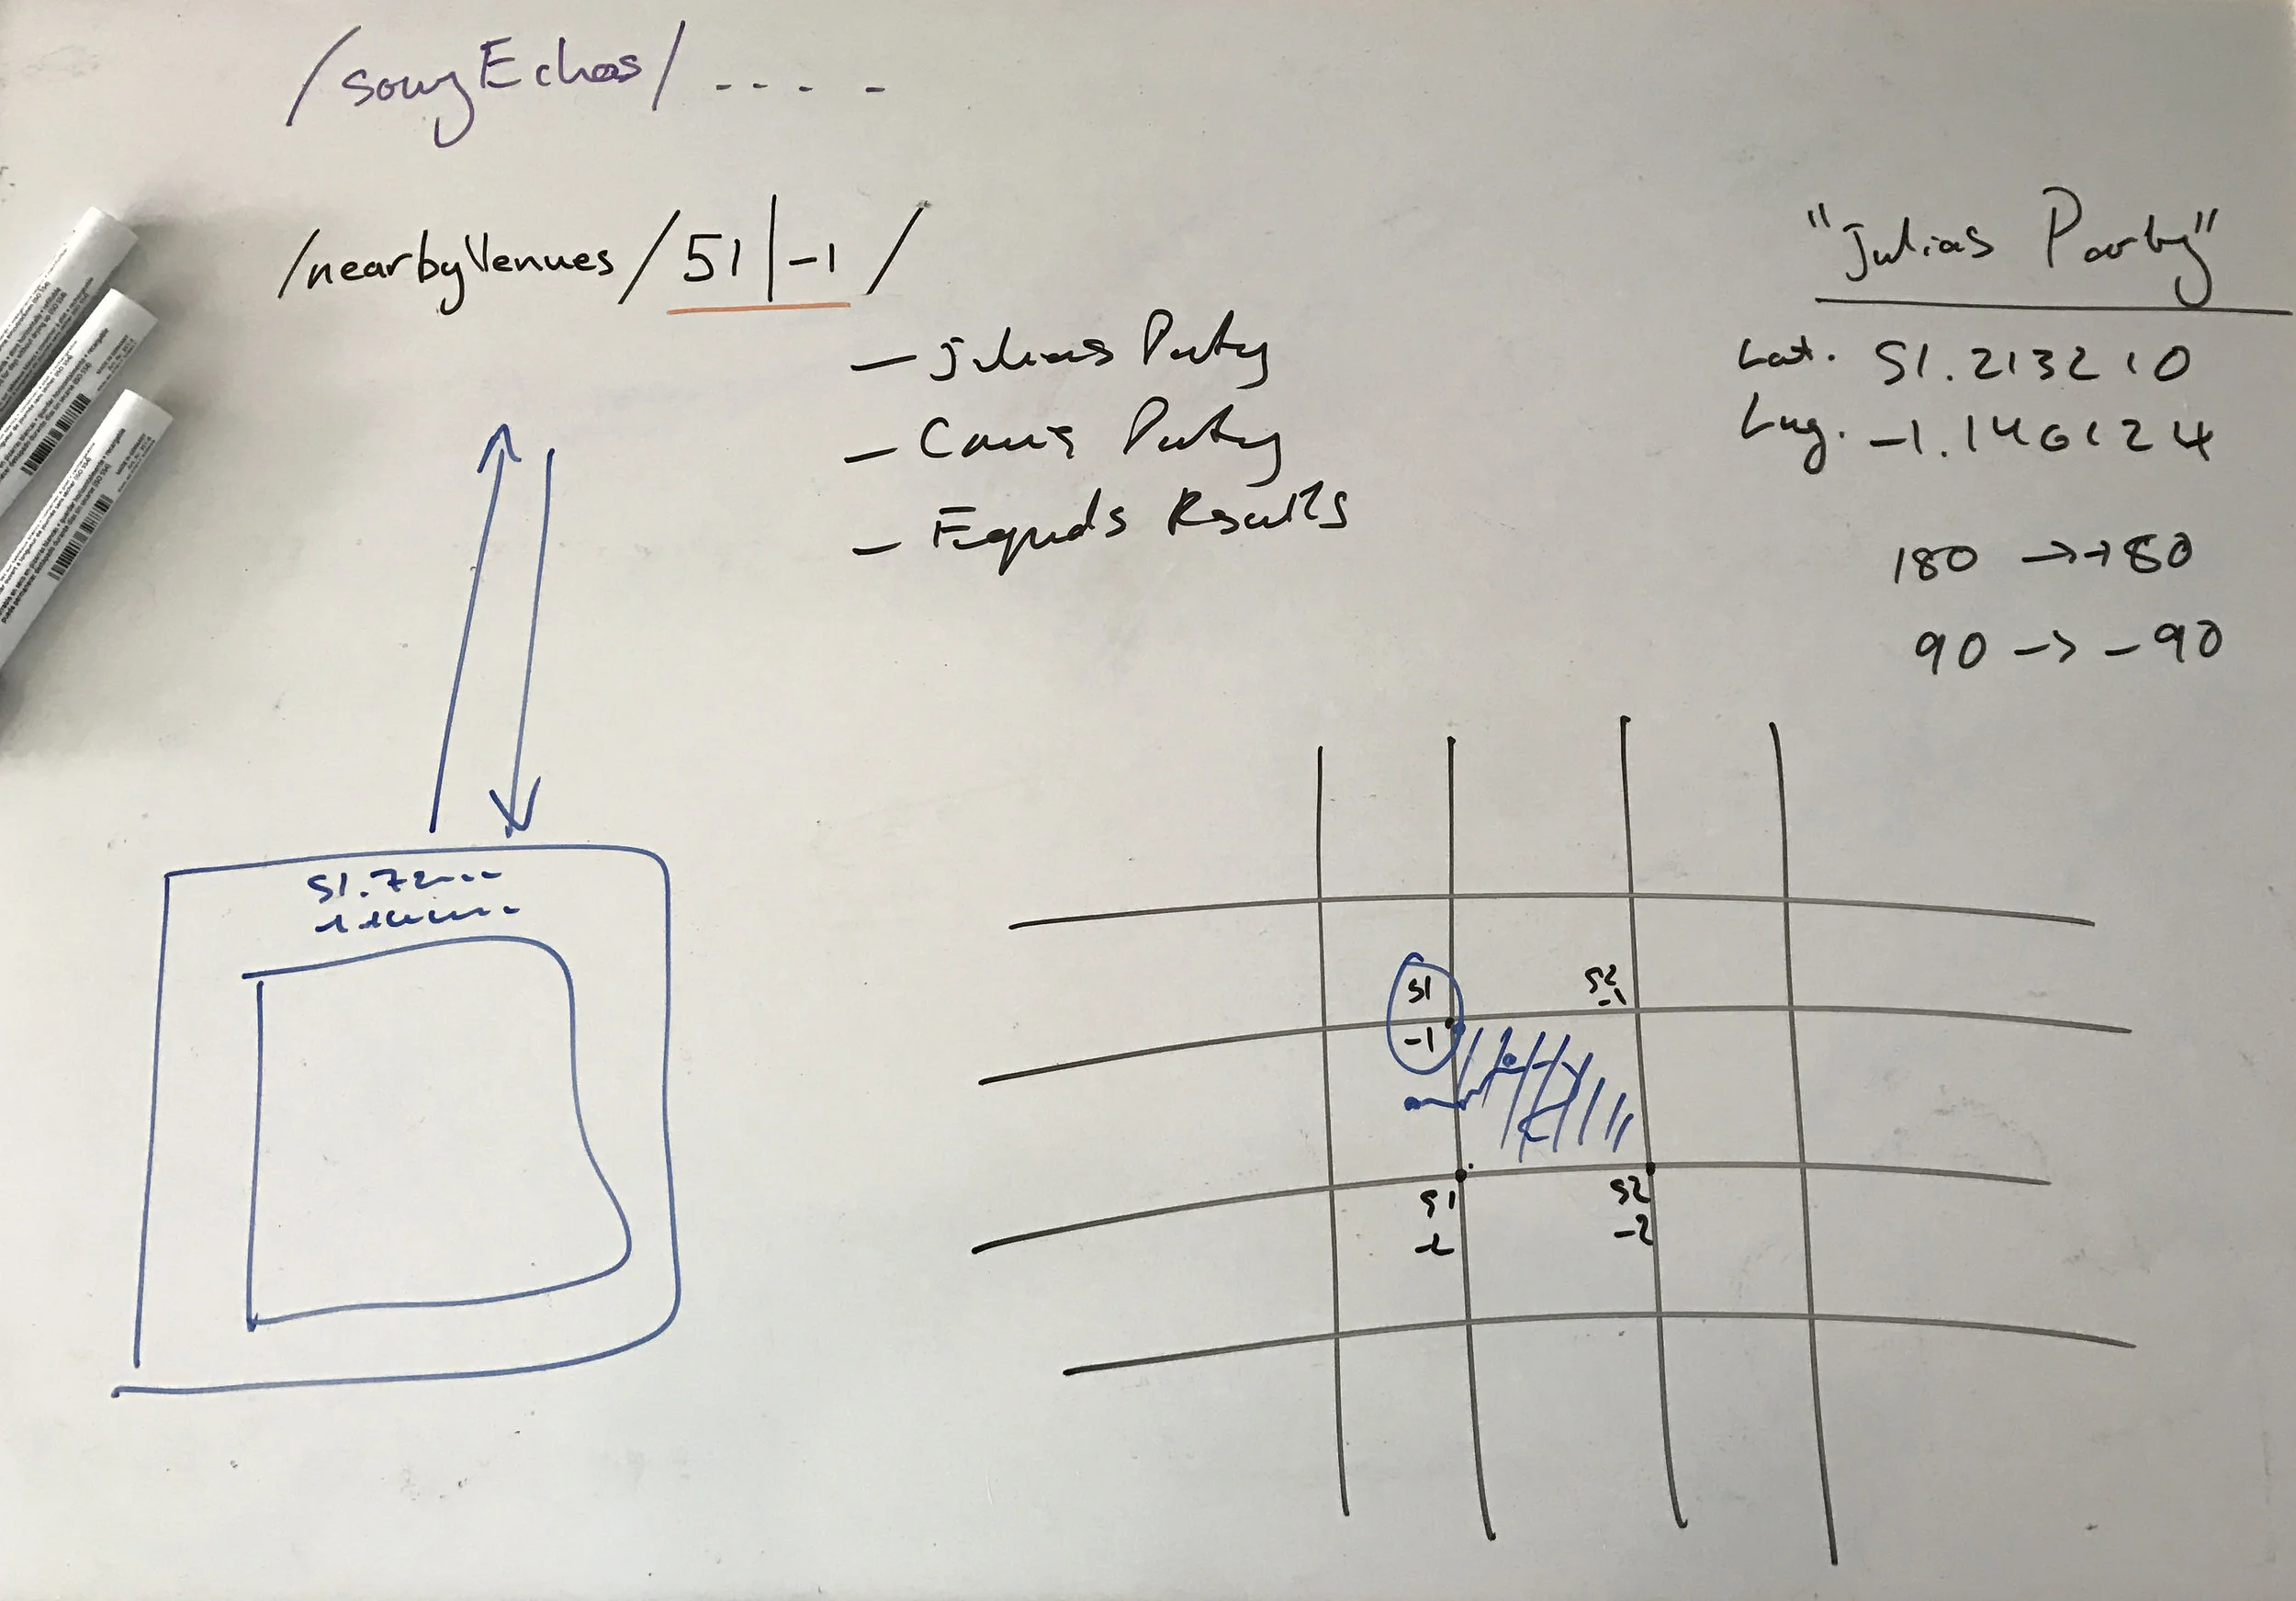 /songEchos/ . . . .
/nearbyVenues/51|-1/
- Julias Party
- Party
- Results
"Julias Party"
Lat. 51.213210
Lng. -1.146124
180 → +80
90 → -90
51.72
51
-1
52
-1
51
-2
52
-2